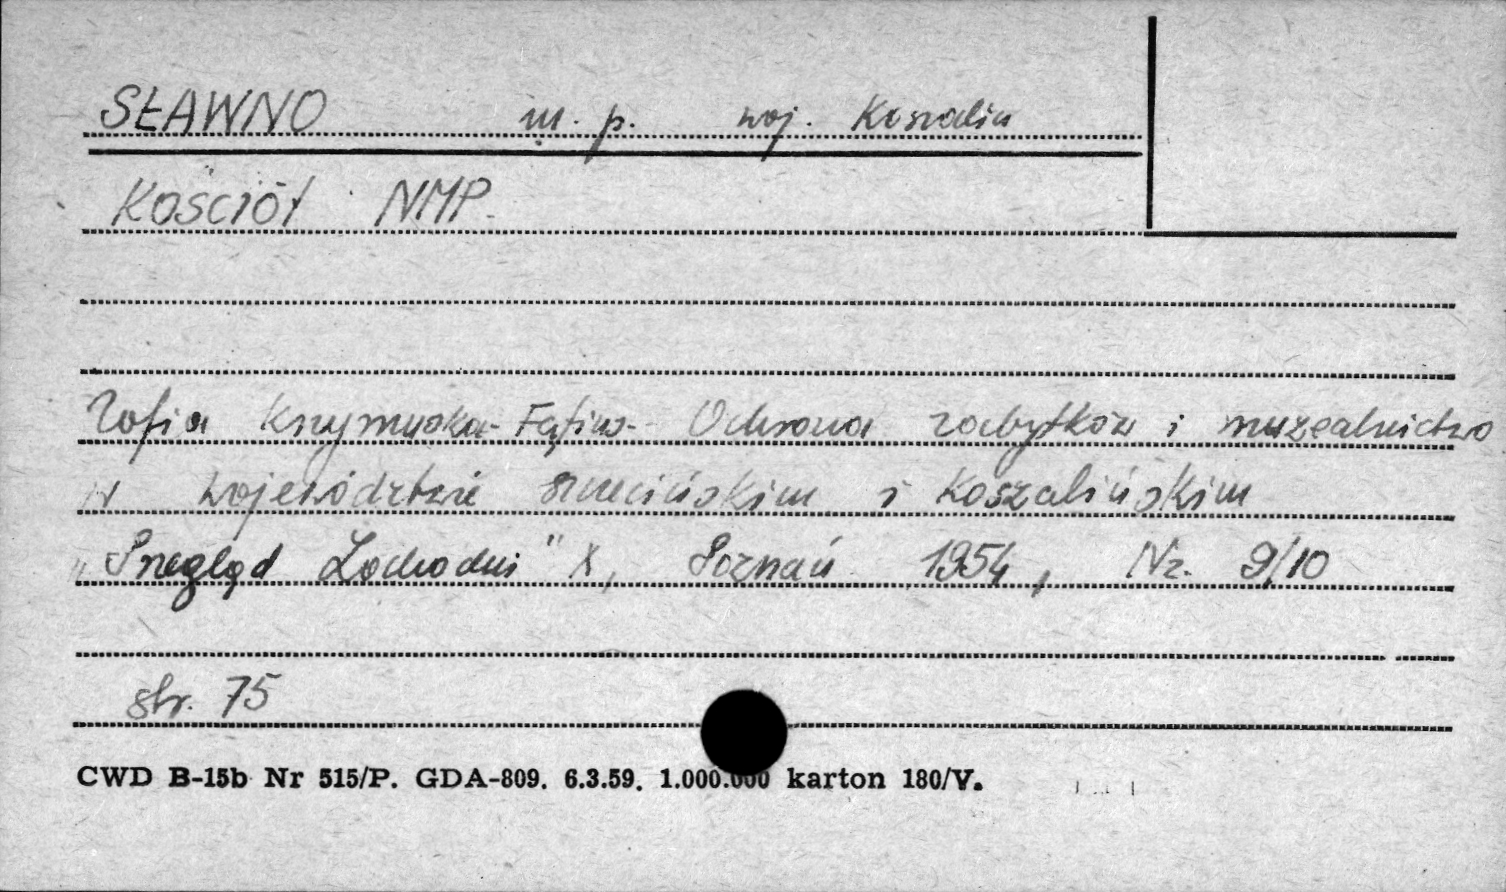 SŁAWNO m. p. woj. Koszalin
KOŚCIÓŁ NMP.
Zofia Krzymuska-Fafius- Ochrona zabytków i muzealnictwo
w województwie szczecińskim i koszalińskim
„Przegląd Zachodni" X, Poznań 1954, Nr. 9/10
str. 75
CWD B-15b Nr 515/P. GDA-809. 6.3.59. 1.000.000 karton 180/V.